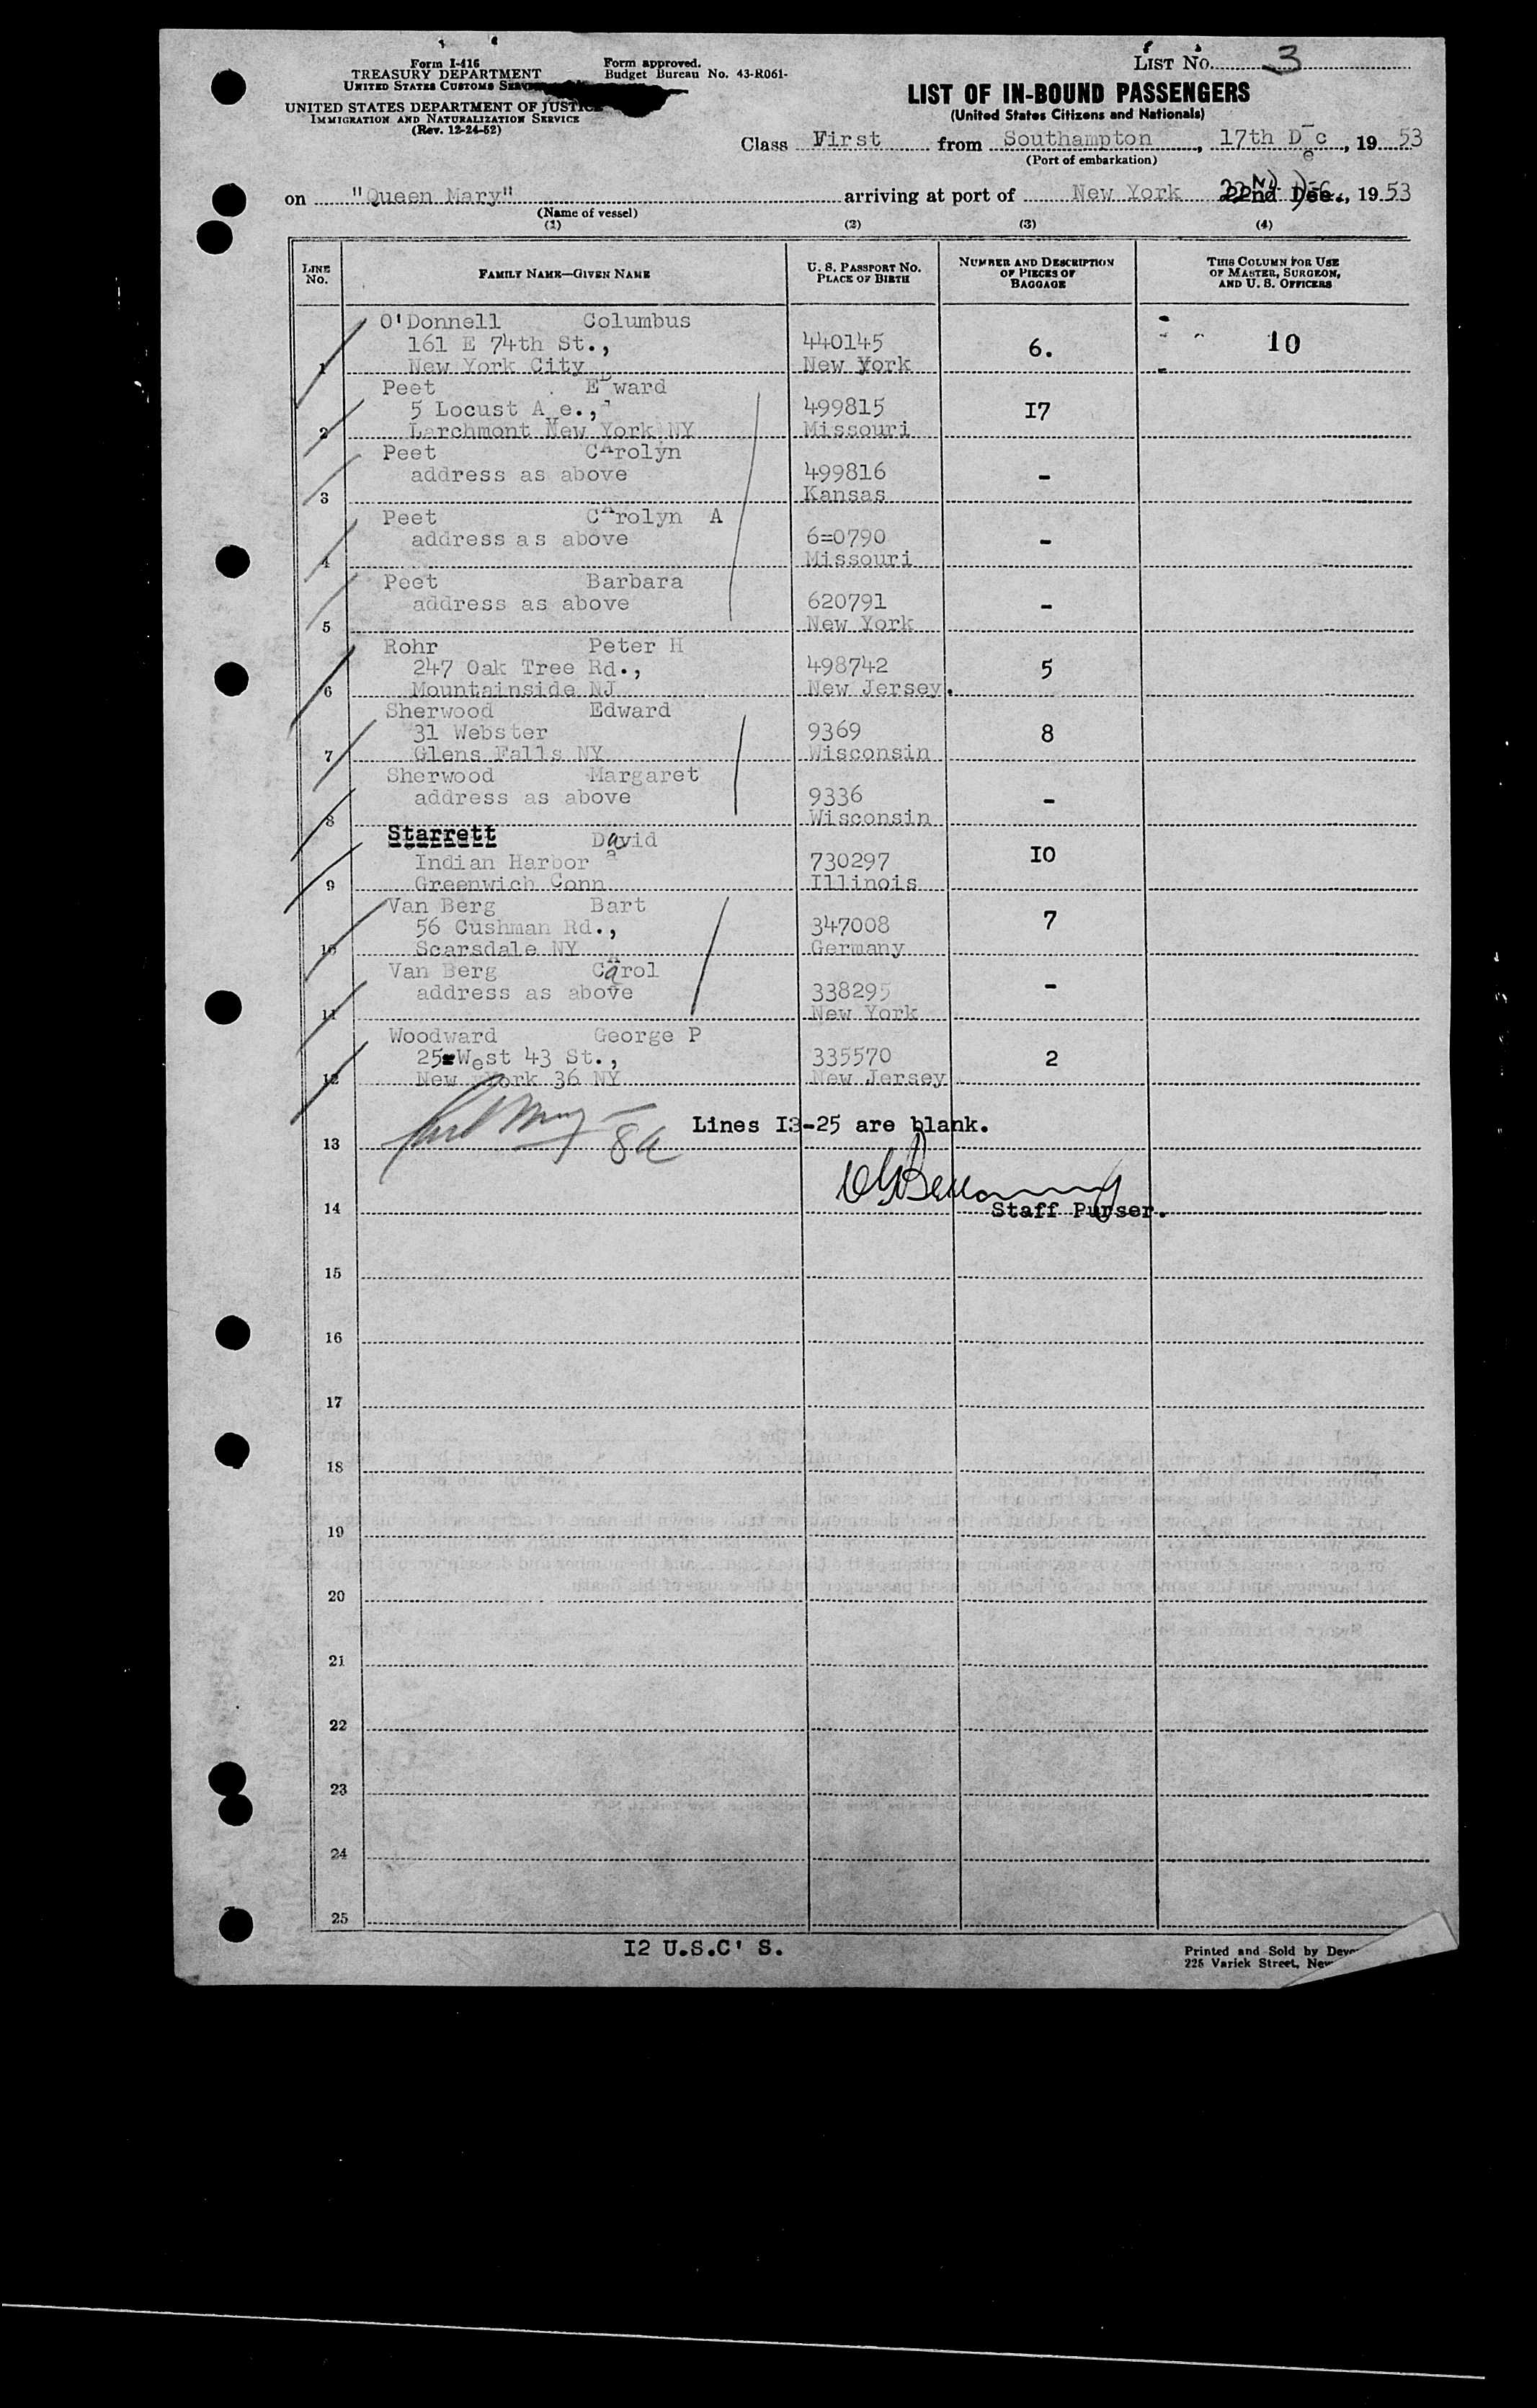 Form I-416
TREASURY DEPARTMENT
UNITED STATES CUSTOMS SERVICE
UNITED STATES DEPARTMENT OF JUSTICE
IMMIGRATION AND NATURALIZATION SERVICE
(Rev. 12-24-52)
Form approved.
Budget Bureau No. 43-R061-
LIST NO. 3
LIST OF IN-BOUND PASSENGERS
(United States Citizens and Nationals)
Class First from Southampton, 17th Dec, 19 53
(Port of embarkation)
on "Queen Mary" arriving at port of New York 22nd Dec., 19 53
(Name of vessel)
(1) (2) (3) (4)
LINE NO.
FAMILY NAME—GIVEN NAME
U. S. PASSPORT NO.
PLACE OF BIRTH
NUMBER AND DESCRIPTION
OF PIECES OF
BAGGAGE
THIS COLUMN FOR USE
OF MASTER, SURGEON,
AND U. S. OFFICERS
O'Donnell Columbus
161 E 74th St., 440145 6. 10
1 New York City New York
Peet Edward
5 Locust A e., 499815 I7
2 Larchmont New York NY Missouri
Peet Carolyn
address as above 499816 -
3 Kansas
Peet Carolyn A
address as above 6=0790 -
4 Missouri
Peet Barbara
address as above 620791 -
5 New York
Rohr Peter H
247 Oak Tree Rd., 498742 5
6 Mountainside NJ New Jersey.
Sherwood Edward
31 Webster 9369 8
7 Glens Falls NY Wisconsin
Sherwood Margaret
address as above 9336 -
8 Wisconsin
Starrett David
Indian Harbor 730297 I0
9 Greenwich Conn Illinois
Van Berg Bart
56 Cushman Rd., 347008 7
10 Scarsdale NY Germany
Van Berg Carol
address as above 338295 -
11 New York
Woodward George P
25 West 43 St., 335570 2
12 New York 36 NY New Jersey
Lines I3-25 are blank.
13
14 Staff Purser.
15
16
17
18
19
20
21
22
23
24
25
I2 U.S.C' S.
Printed and Sold by
225 Varick Street,